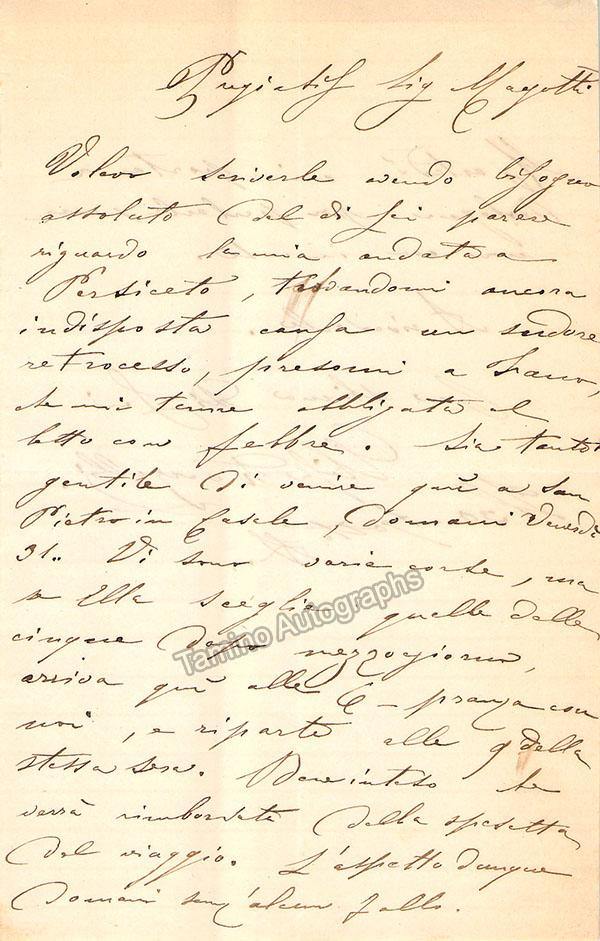 Pregiatis Sig Magotti
Volevo scriverle avendo bisogno
assoluto del di Lei parere
riguardo la mia andata a
Persiceto, trovandomi ancora
indisposta causa un sudore
retrocesso, presomi a Fano,
che mi tenne obbligata al
letto con febbre. Sia tanto
gentile di venire quì a San
Pietro in Casale, domani Venerdì
31. Vi sono varie corse, ma
se Ella sceglie quelle delle
cinque dopo mezzogiorno,
arriva quì alle 6 - pranza con
noi, e riparte alle 9 della
stessa sera. Beninteso che
verrà rimborsata della spesetta
del viaggio. L'aspetto dunque
domani senz'alcun fallo.
Tamino Autographs